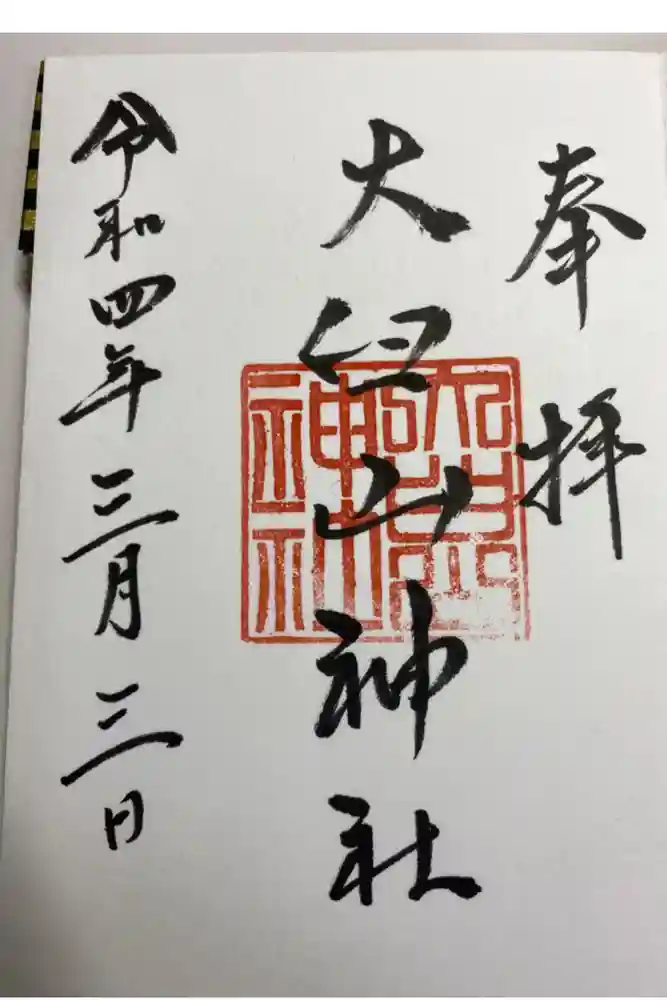 奉拝
大臼山神社
令和四年三月三日